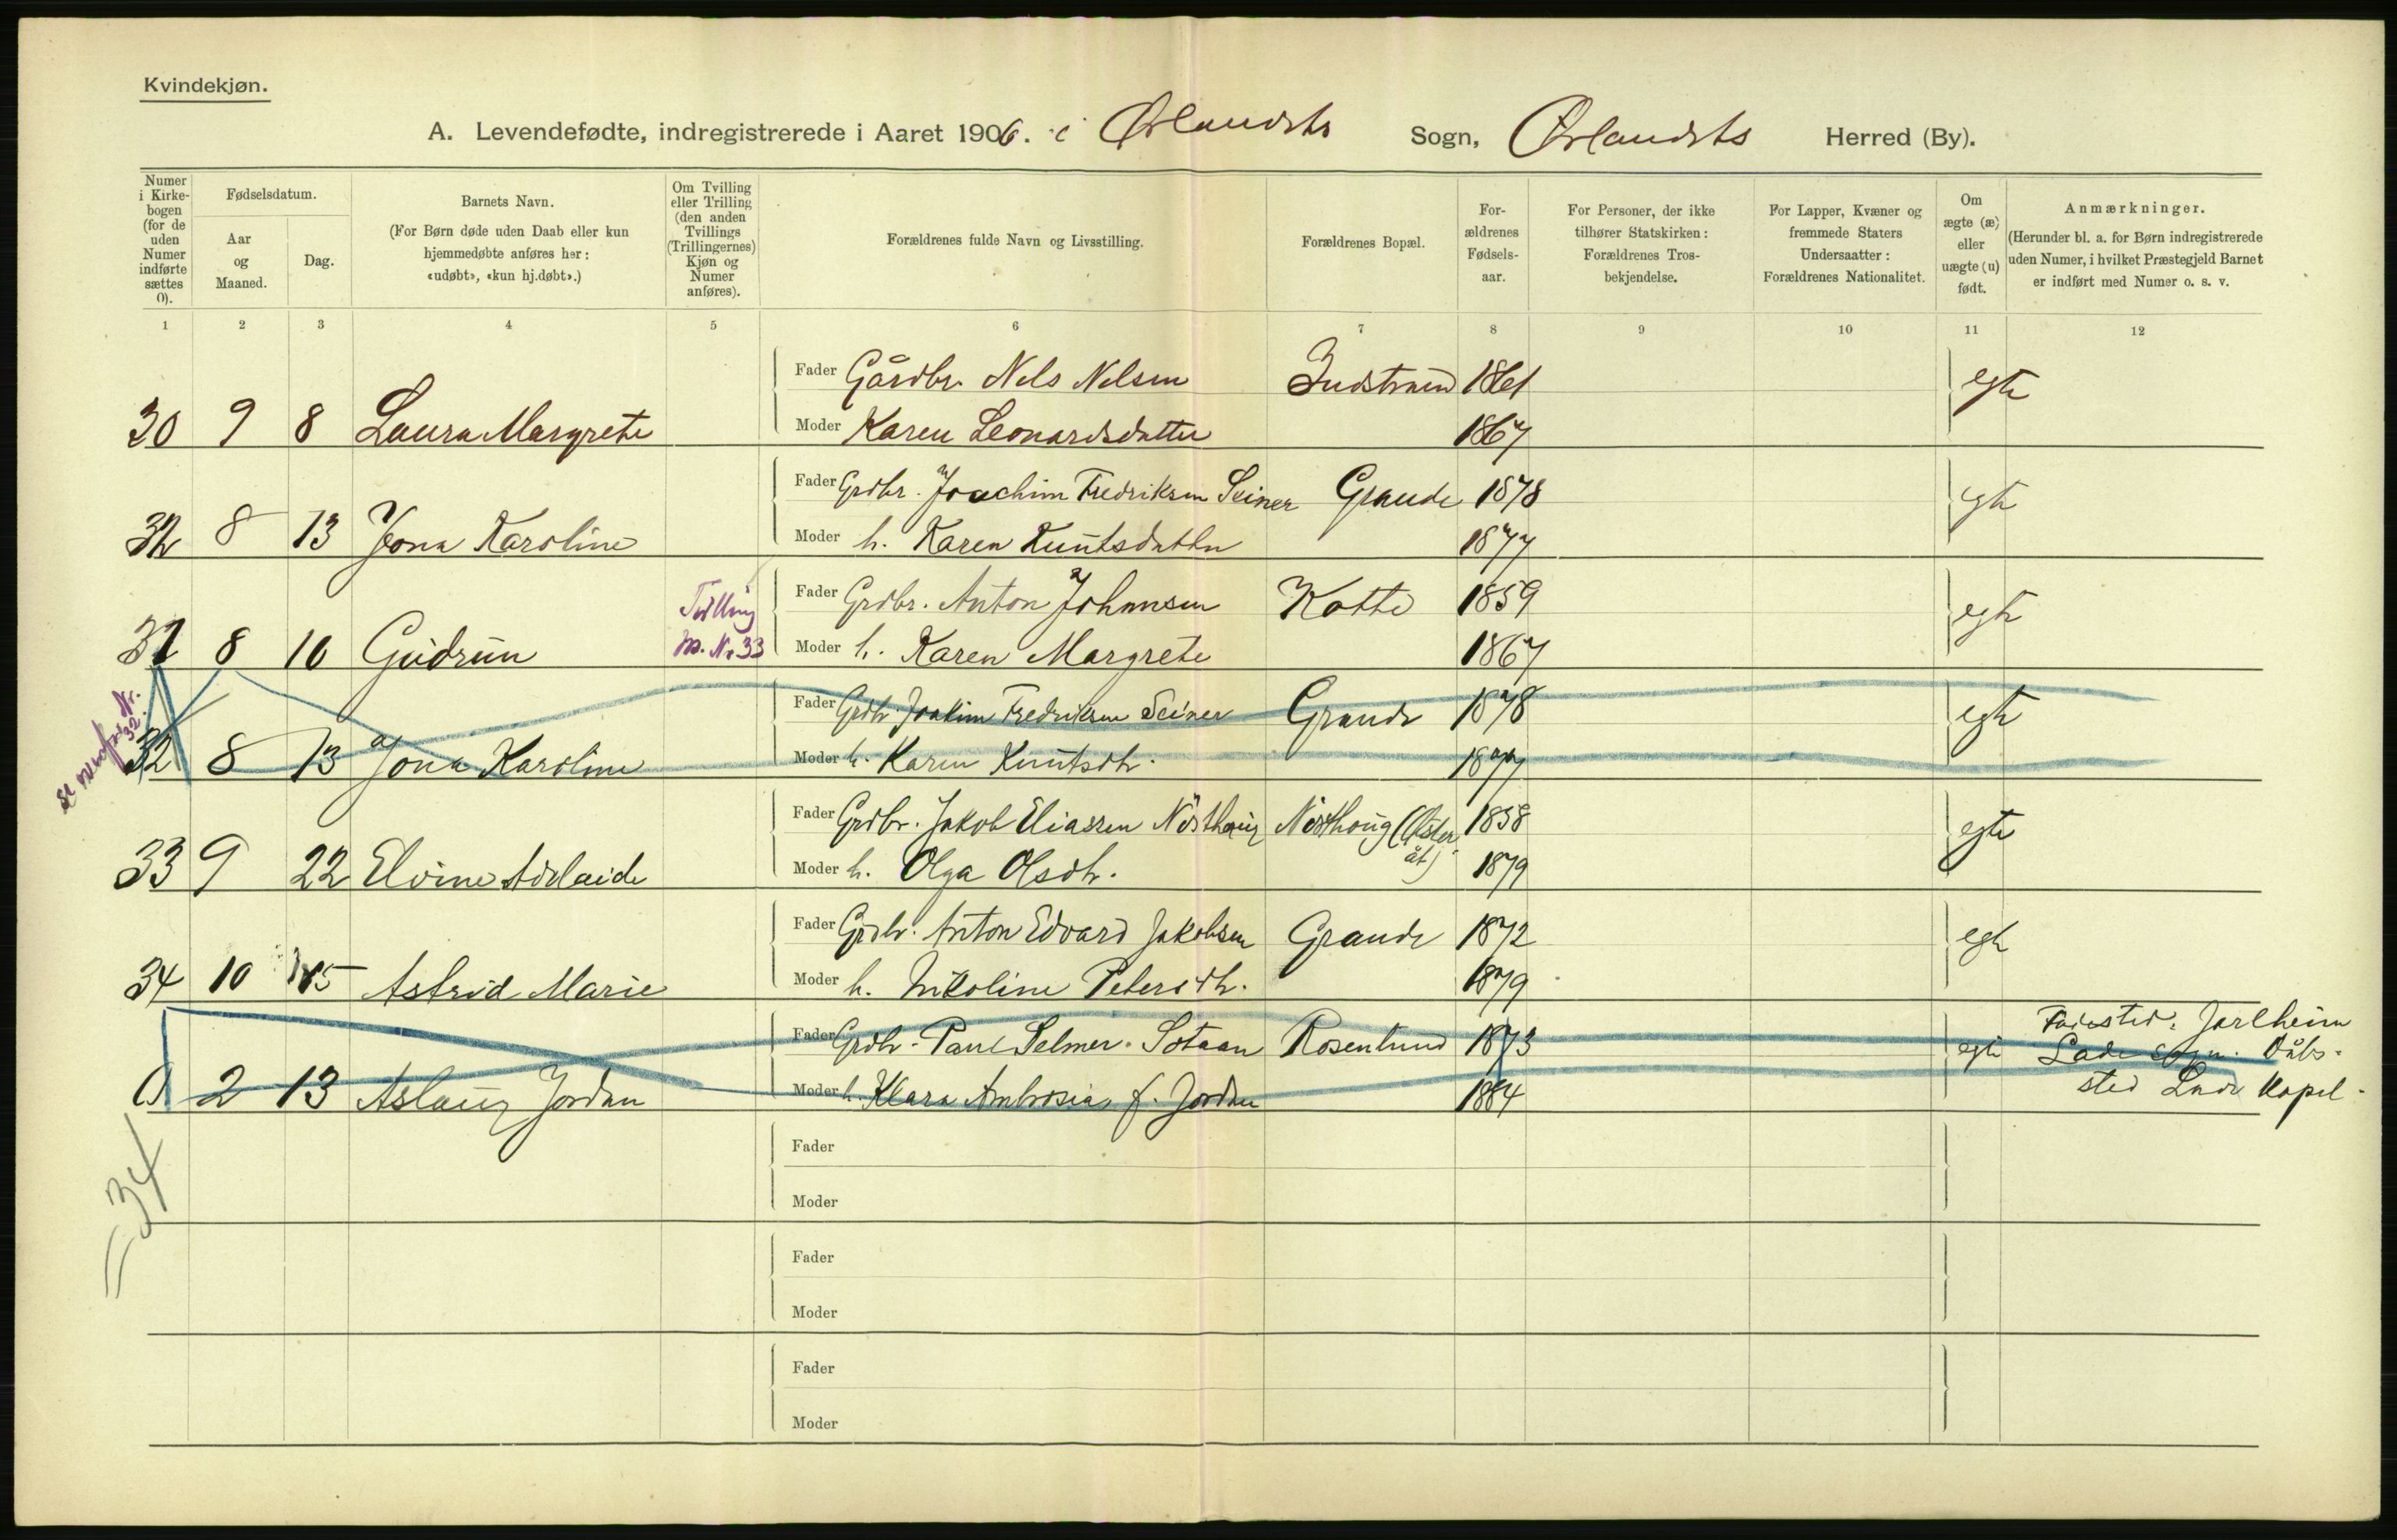 Kvindekjøn.
A. Levendefødte, indregistrerede i Aaret 1906. i Ørlandets Sogn, Ørlandets Herred (By).
Numer i Kirkebogen (for de uden Numer indførte sættes 0).
Fødselsdatum.
Aar og Maaned.
Dag.
Barnets Navn.
(For Børn døde uden Daab eller kun hjemmedøbte anføres her: «udøbt», «kun hj.døbt».)
Om Tvilling eller Trilling (den anden Tvillings (Trillingernes) Kjøn og Numer anføres).
Forældrenes fulde Navn og Livsstilling.
Forældrenes Bopæl.
For-ældrenes Fødsels-aar.
For Personer, der ikke tilhører Statskirken: Forældrenes Tros-bekjendelse.
For Lapper, Kvæner og fremmede Staters Undersaatter: Forældrenes Nationalitet.
Om ægte (æ) eller uægte (u) født.
Anmærkninger.
(Herunder bl. a. for Børn indregistrerede uden Numer, i hvilket Præstegjeld Barnet er indført med Numer o. s. v.
1 2 3 4 5 6 7 8 9 10 11 12
Fader Gårdbr. Nels Nelsen Indstrand 1861 egte
30 9 8 Laura Margrete Moder Karen Leonardsdatter 1867
Fader Grdbr. Joachim Fredriksen Seiner Grande 1878 egte
32 8 13 Jona Karoline Moder h. Karen Knutsdatter 1877
Tvilling Fader Grdbr. Anton Johansen Kotte 1859 egte
31 8 10 Gudrun m. Nr 33 Moder h. Karen Margrete 1867
Fader Grdbr. Joakim Fredriksen Seiner Grande 1878 egte
32 8 13 Jona Karoline Moder h. Karen Knutsdtr. 1877
Nr. 32
Fader Grdbr. Jakob Eliassen Nösthaug Nösthoug (Öster 1858 egte
33 9 22 Elvine Adelaide Moder h. Olga Olsdtr. åt) 1879
Fader Grdbr. Anton Edvard Jakobsen Grande 1872 egte
34 10 15 Astrid Marie Moder h. Nikoline Petersdtr. 1879
Fader Grdbr. Paul Selmer Sotaan Rosenlund 1873 egte Fødested: Jarlheim
Lade sogn. Dåbs-
0 2 13 Aslaug Jordan Moder h. Klara Ambrosia f. Jordan 1884 sted Lade Kapel.
Fader
= 34
Moder
Fader
Moder
Fader
Moder